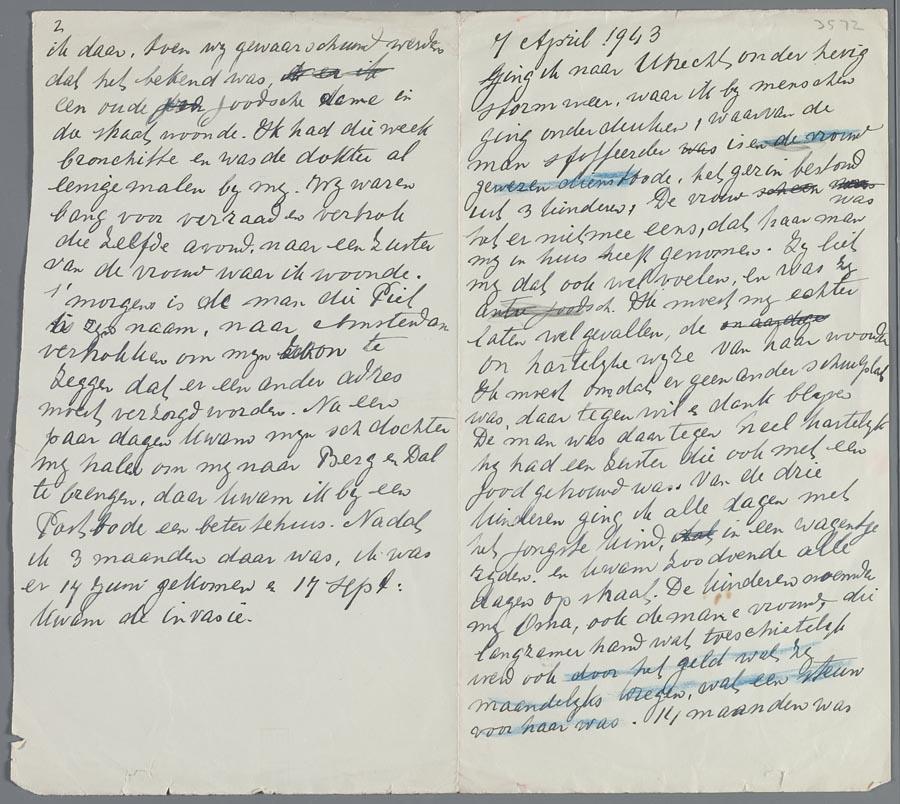 3572
7 April 1943
ging ik naar Utrecht onder hevig
stormweer, waar ik by menschen
ging onderduiken, waarvan de
man stoffeerder was is en de vrouw
gewezen dienstbode, het gezin bestond
uit 3 kinderen, De vrouw scheen was
was
het er niet mee eens, dat haar man
my in huis heeft genomen. Zy liet
my dat ook wel voelen, en was zy
antie joodsch. Ik moest my echter
laten welgevallen, de onaardige
on hartelyke wyze van haar woorden
Ik moest omdat er geen ander schuilplaats
was, daar tegen wil & dank blyven
De man was daartegen heel hartelyk
hy had een zuster die ook met een
Jood getrouwd was. Van de drie
kinderen ging ik alle dagen met
het jongste kind, dat in een wagentje
ryden. en kwam zoodoende alle
dagen op straat. De kinderen noemden
my Oma, ook de man & vrouw, die
langzamer hand wat toeschietelyk
werd ook door het geld wat zy
maandelyks kregen, wat een steun
voor haar was. 14 maanden was
2
ik daar, toen wy gewaarschuwd werden
dat het bekend was, dat er ik
een oude Joodsche dame in
de straat woonde. Ik had die week
bronchitte en was de dokter al
eenige malen by my. Wy waren
bang voor verraad en vertrok
die zelfde avond, naar een zuster
van de vrouw waar ik woonde.
s' morgens is de man die Piet
is zyn naam, naar Amsterdam
vertrokken om myn zoon te
zeggen dat er een ander adres
moest verzorgd worden. Na een
paar dagen kwam myn schdochter
my halen om my naar Berg en Dal
te brengen, daar kwam ik by een
Postbode een beter tehuis. Nadat
ik 3 maanden daar was, ik was
er 14 Juni gekomen & 17 Sept:
kwam de invasie.